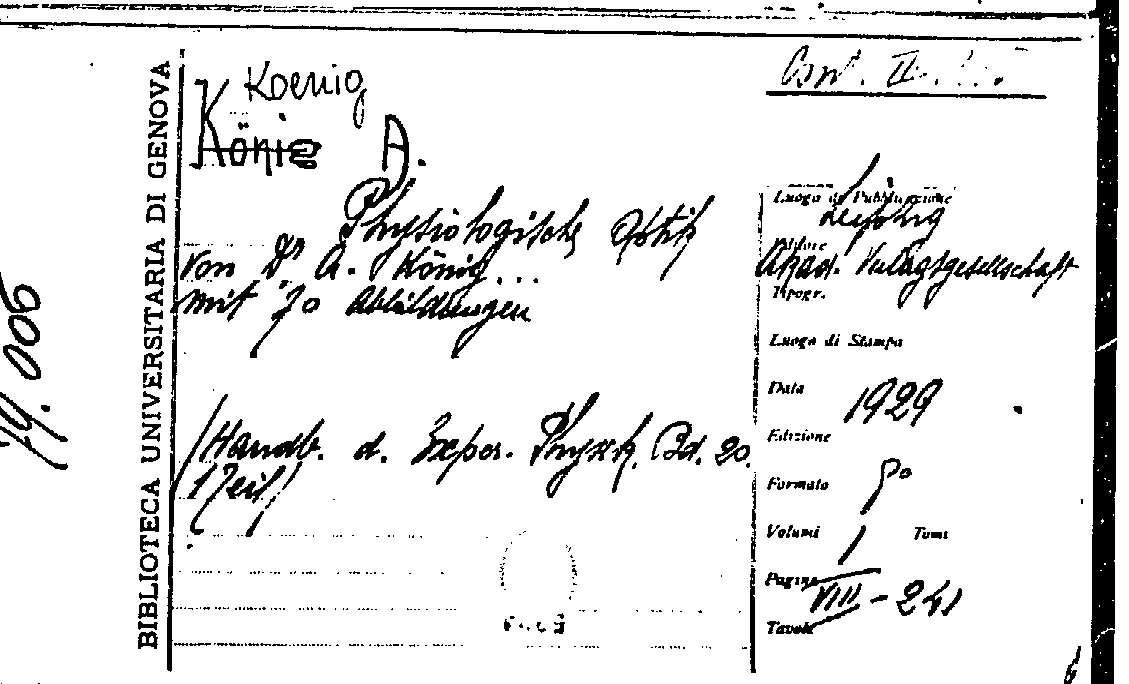 Koenig
König A.
Physiologische Optik
von Dr A. König...
mit 70 Abbildungen
(Handb. d. Exper. Physik. Bd. 20.
1 Teil)
BIBLIOTECA UNIVERSITARIA DI GENOVA
Luogo di Pubblicazione
Leipzig
Editore
Akad. Verlagsgesellschaft
Tipogr.
Luogo di Stampa
Data 1929
Edizione
Formato 8°
Volumi 1 Tomi
Pagine VIII-241
Tavole